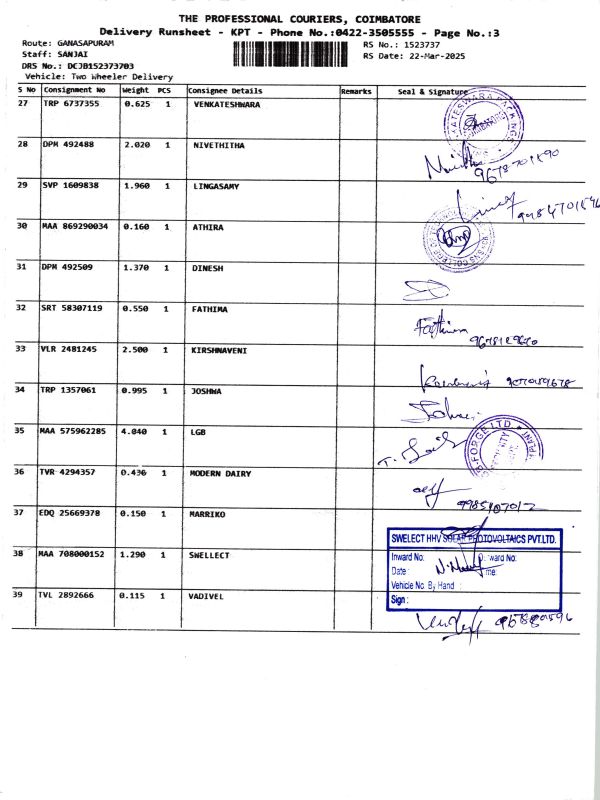 THE PROFESSIONAL COURIERS, COIMBATORE
Delivery Runsheet - KPT - Phone No.:0422-3505555 - Page No.:3
Route: GANASAPURAM
Staff: SANJAI
DRS No.: DCJB152373703
Vehicle: Two Wheeler Delivery
RS No.: 1523737
RS Date: 22-Mar-2025
S No Consignment No Weight PCS Consignee Details Remarks Seal & Signature
27 TRP 6737355 0.625 1 VENKATESHWARA
28 DPM 492488 2.020 1 NIVETHITHA
29 SVP 1609838 1.960 1 LINGASAMY
30 MAA 869290034 0.160 1 ATHIRA
31 DPM 492509 1.370 1 DINESH
32 SRT 58307119 0.550 1 FATHIMA
Fathima
33 VLR 2481245 2.500 1 KIRSHNAVENI
34 TRP 1357061 0.995 1 JOSHWA
35 MAA 575962285 4.040 1 LGB
FORGE LTD
36 TVR 4294357 0.436 1 MODERN DAIRY
37 EDQ 25669378 0.150 1 MARRIKO
SWELECT HHV SOLAR PHOTOVOLTAICS PVT.LTD.
38 MAA 708000152 1.290 1 SWELLECT
Inward No:
Date :
Vehicle No. By Hand :
Sign :
39 TVL 2892666 0.115 1 VADIVEL